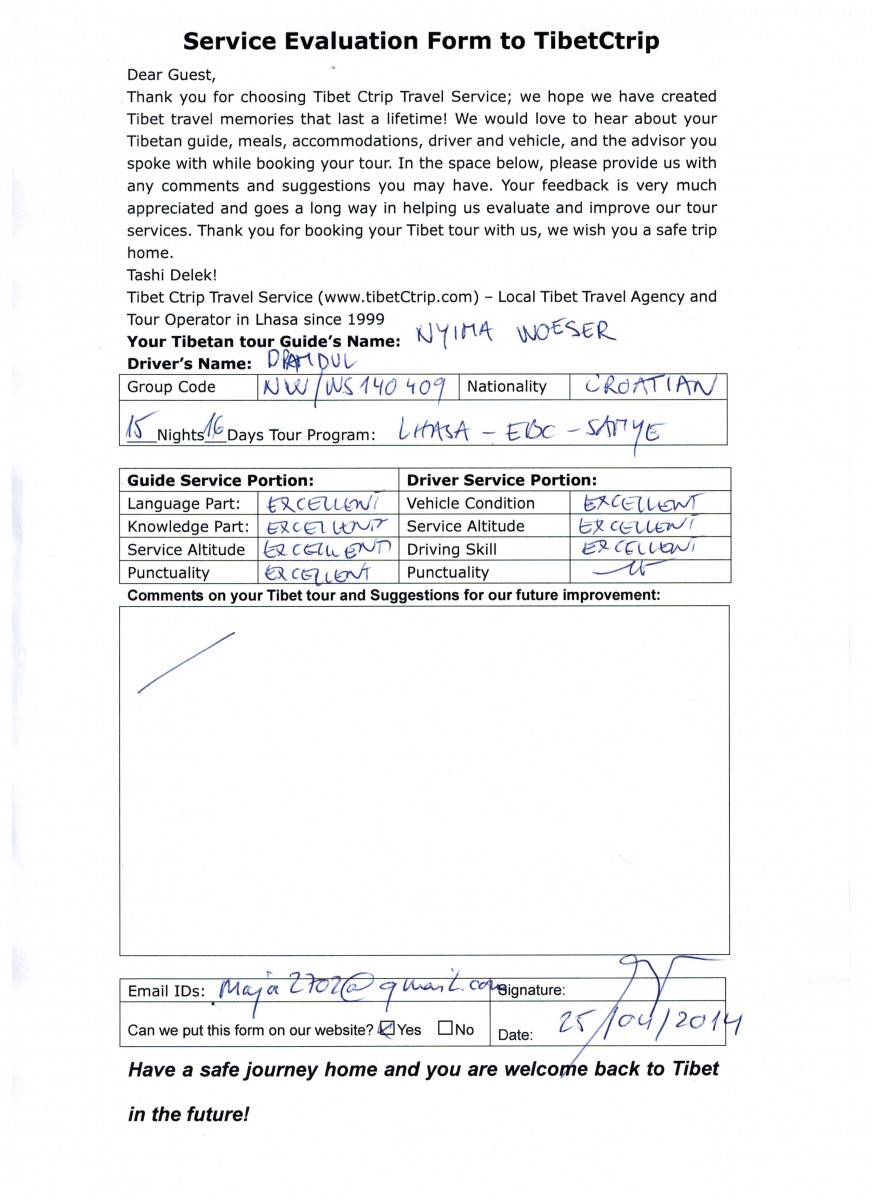 Service Evaluation Form to TibetCtrip
Dear Guest,
Thank you for choosing Tibet Ctrip Travel Service; we hope we have created
Tibet travel memories that last a lifetime! We would love to hear about your
Tibetan guide, meals, accommodations, driver and vehicle, and the advisor you
spoke with while booking your tour. In the space below, please provide us with
any comments and suggestions you may have. Your feedback is very much
appreciated and goes a long way in helping us evaluate and improve our tour
services. Thank you for booking your Tibet tour with us, we wish you a safe trip
home.
Tashi Delek!
Tibet Ctrip Travel Service (www.tibetCtrip.com) – Local Tibet Travel Agency and
Tour Operator in Lhasa since 1999
Your Tibetan tour Guide's Name: NYIMA WOESER
Driver's Name:
Group Code NW/WS140409 Nationality CROATIAN
15 Nights 16 Days Tour Program: LHASA - EBC - SAMYE
Guide Service Portion: Driver Service Portion:
Language Part: EXCELLENT Vehicle Condition EXCELLENT
Knowledge Part: EXCELLENT Service Altitude EXCELLENT
Service Altitude EXCELLENT Driving Skill EXCELLENT
Punctuality EXCELLENT Punctuality
Comments on your Tibet tour and Suggestions for our future improvement:
Email IDs: Maja2702@gmail.com Signature:
Can we put this form on our website? Yes No Date: 25/04/2014
Have a safe journey home and you are welcome back to Tibet
in the future!